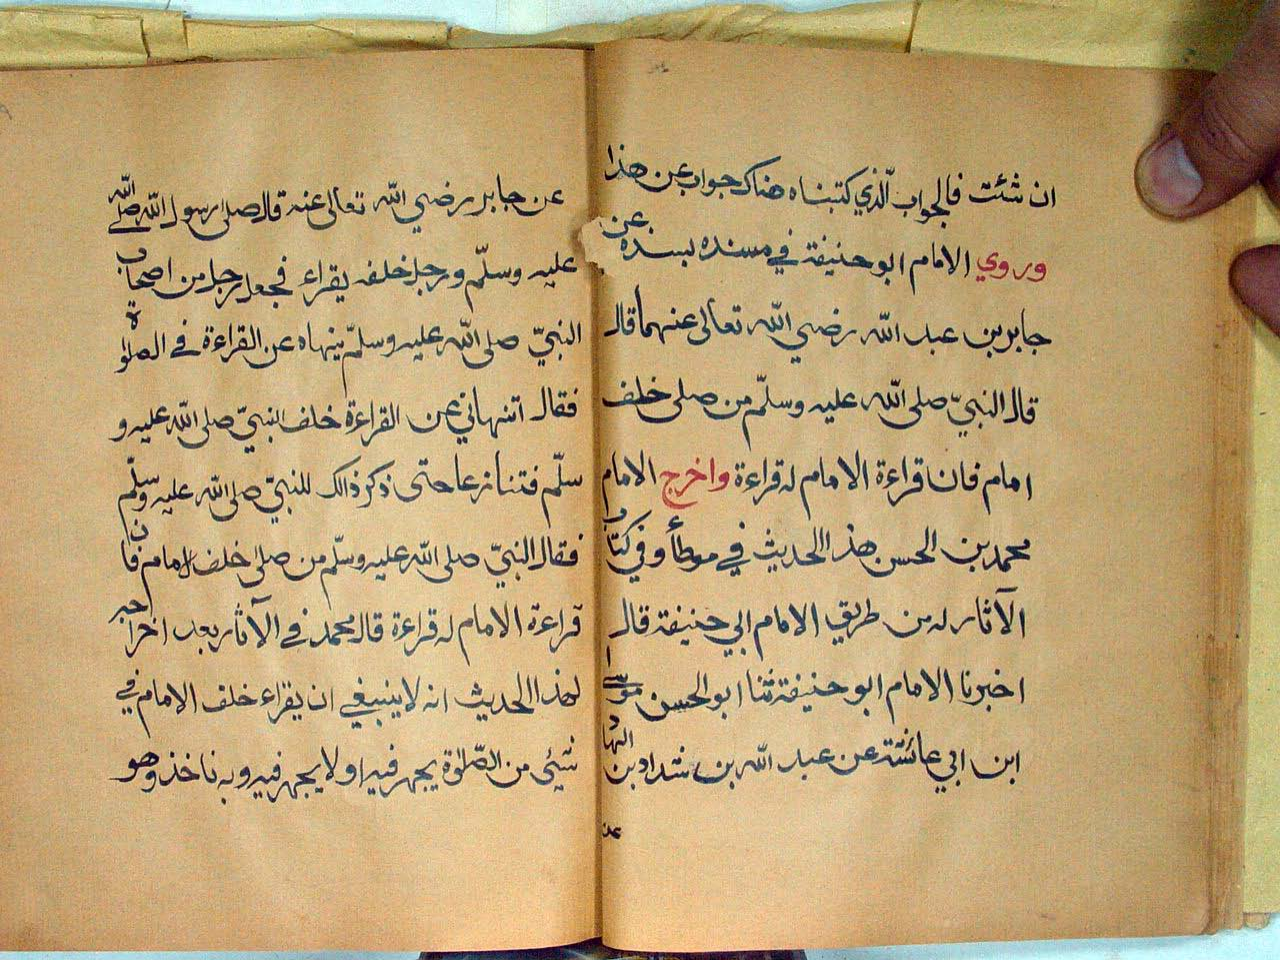 ان شئت فالجواب الّذي كتبناه هناك جواب عن هذا
وروي الامام ابو حنيفة في مسنده بسنده عن
جابر بن عبد الله رضي الله تعالى عنهما قال
قال النبيّ صلى الله عليه وسلّم من صلى خلف
امام فان قراءة الامام له قراءة واخرج الامام
محمد بن الحسن هذا الحديث في موطأ وفي كتاب
الآثار له من طريق الامام ابي حنيفة قال
اخبرنا الامام ابو حنيفة ثنا ابو الحسن موسى
ابن ابي عائشة عن عبد الله بن شداد بن الهاد
عن
عن جابر رضي الله تعالى عنه قال صلى رسول الله صلى الله
عليه وسلّم ورجل خلفه يقراء فجعل رجل من اصحاب
النبيّ صلى الله عليه وسلّم ينهاه عن القراءة في الصلوة
فقال اتنهاني عن القراءة خلف النبيّ صلى الله عليه و
سلّم فتنازعا حتى ذكر ذالك للنبيّ صلى الله عليه وسلّم
فقال النبيّ صلى الله عليه وسلّم من صلى خلف الامام فان
قراءة الامام له قراءة قال محمد في الآثار بعد اخراجه
لهذا الحديث انه لا ينبغي ان يقراء خلف الامام في
شيئ من الصّلوة يجهر فيه او لا يجهر فيه وبه ناخذ وهو